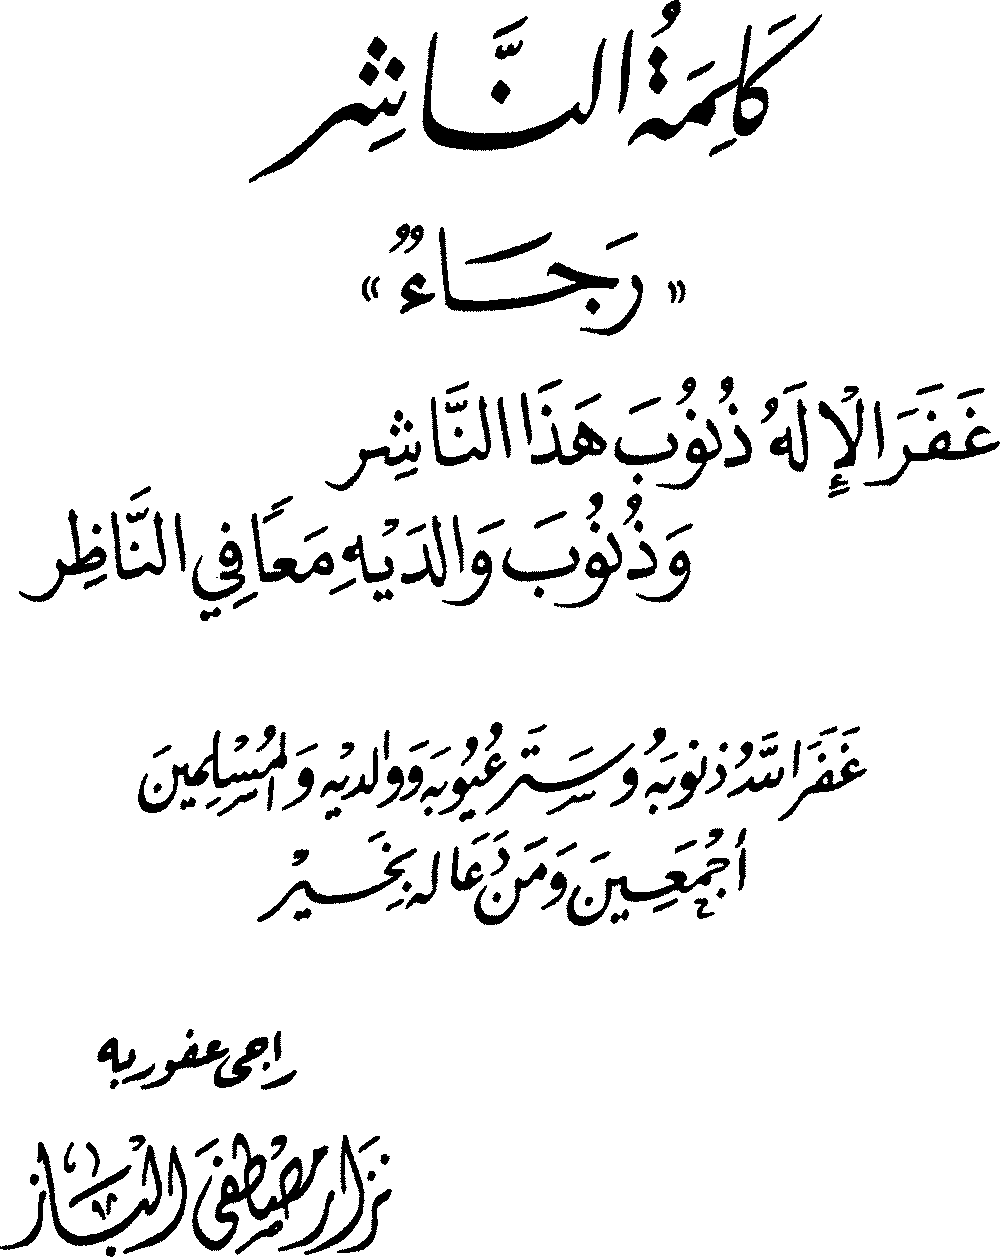 كَلِمَةُ النَّاشِر
« رَجَاءٌ »
غَفَرَ الْإِلَهُ ذُنُوبَ هَذَا النَّاشِر
وَذُنُوبَ وَالدَيْهِ مَعًا فِي النَّاظِر
غَفَرَ اللَّهُ ذنُوبَهُ وَسَتَر عُيُوبَه وَوالديْه وَالمُسْلِمينَ
أجْمَعِينَ وَمَنْ دَعَا له بِخَيْر
راجى عفو ربه
نزار مصطفى الباز